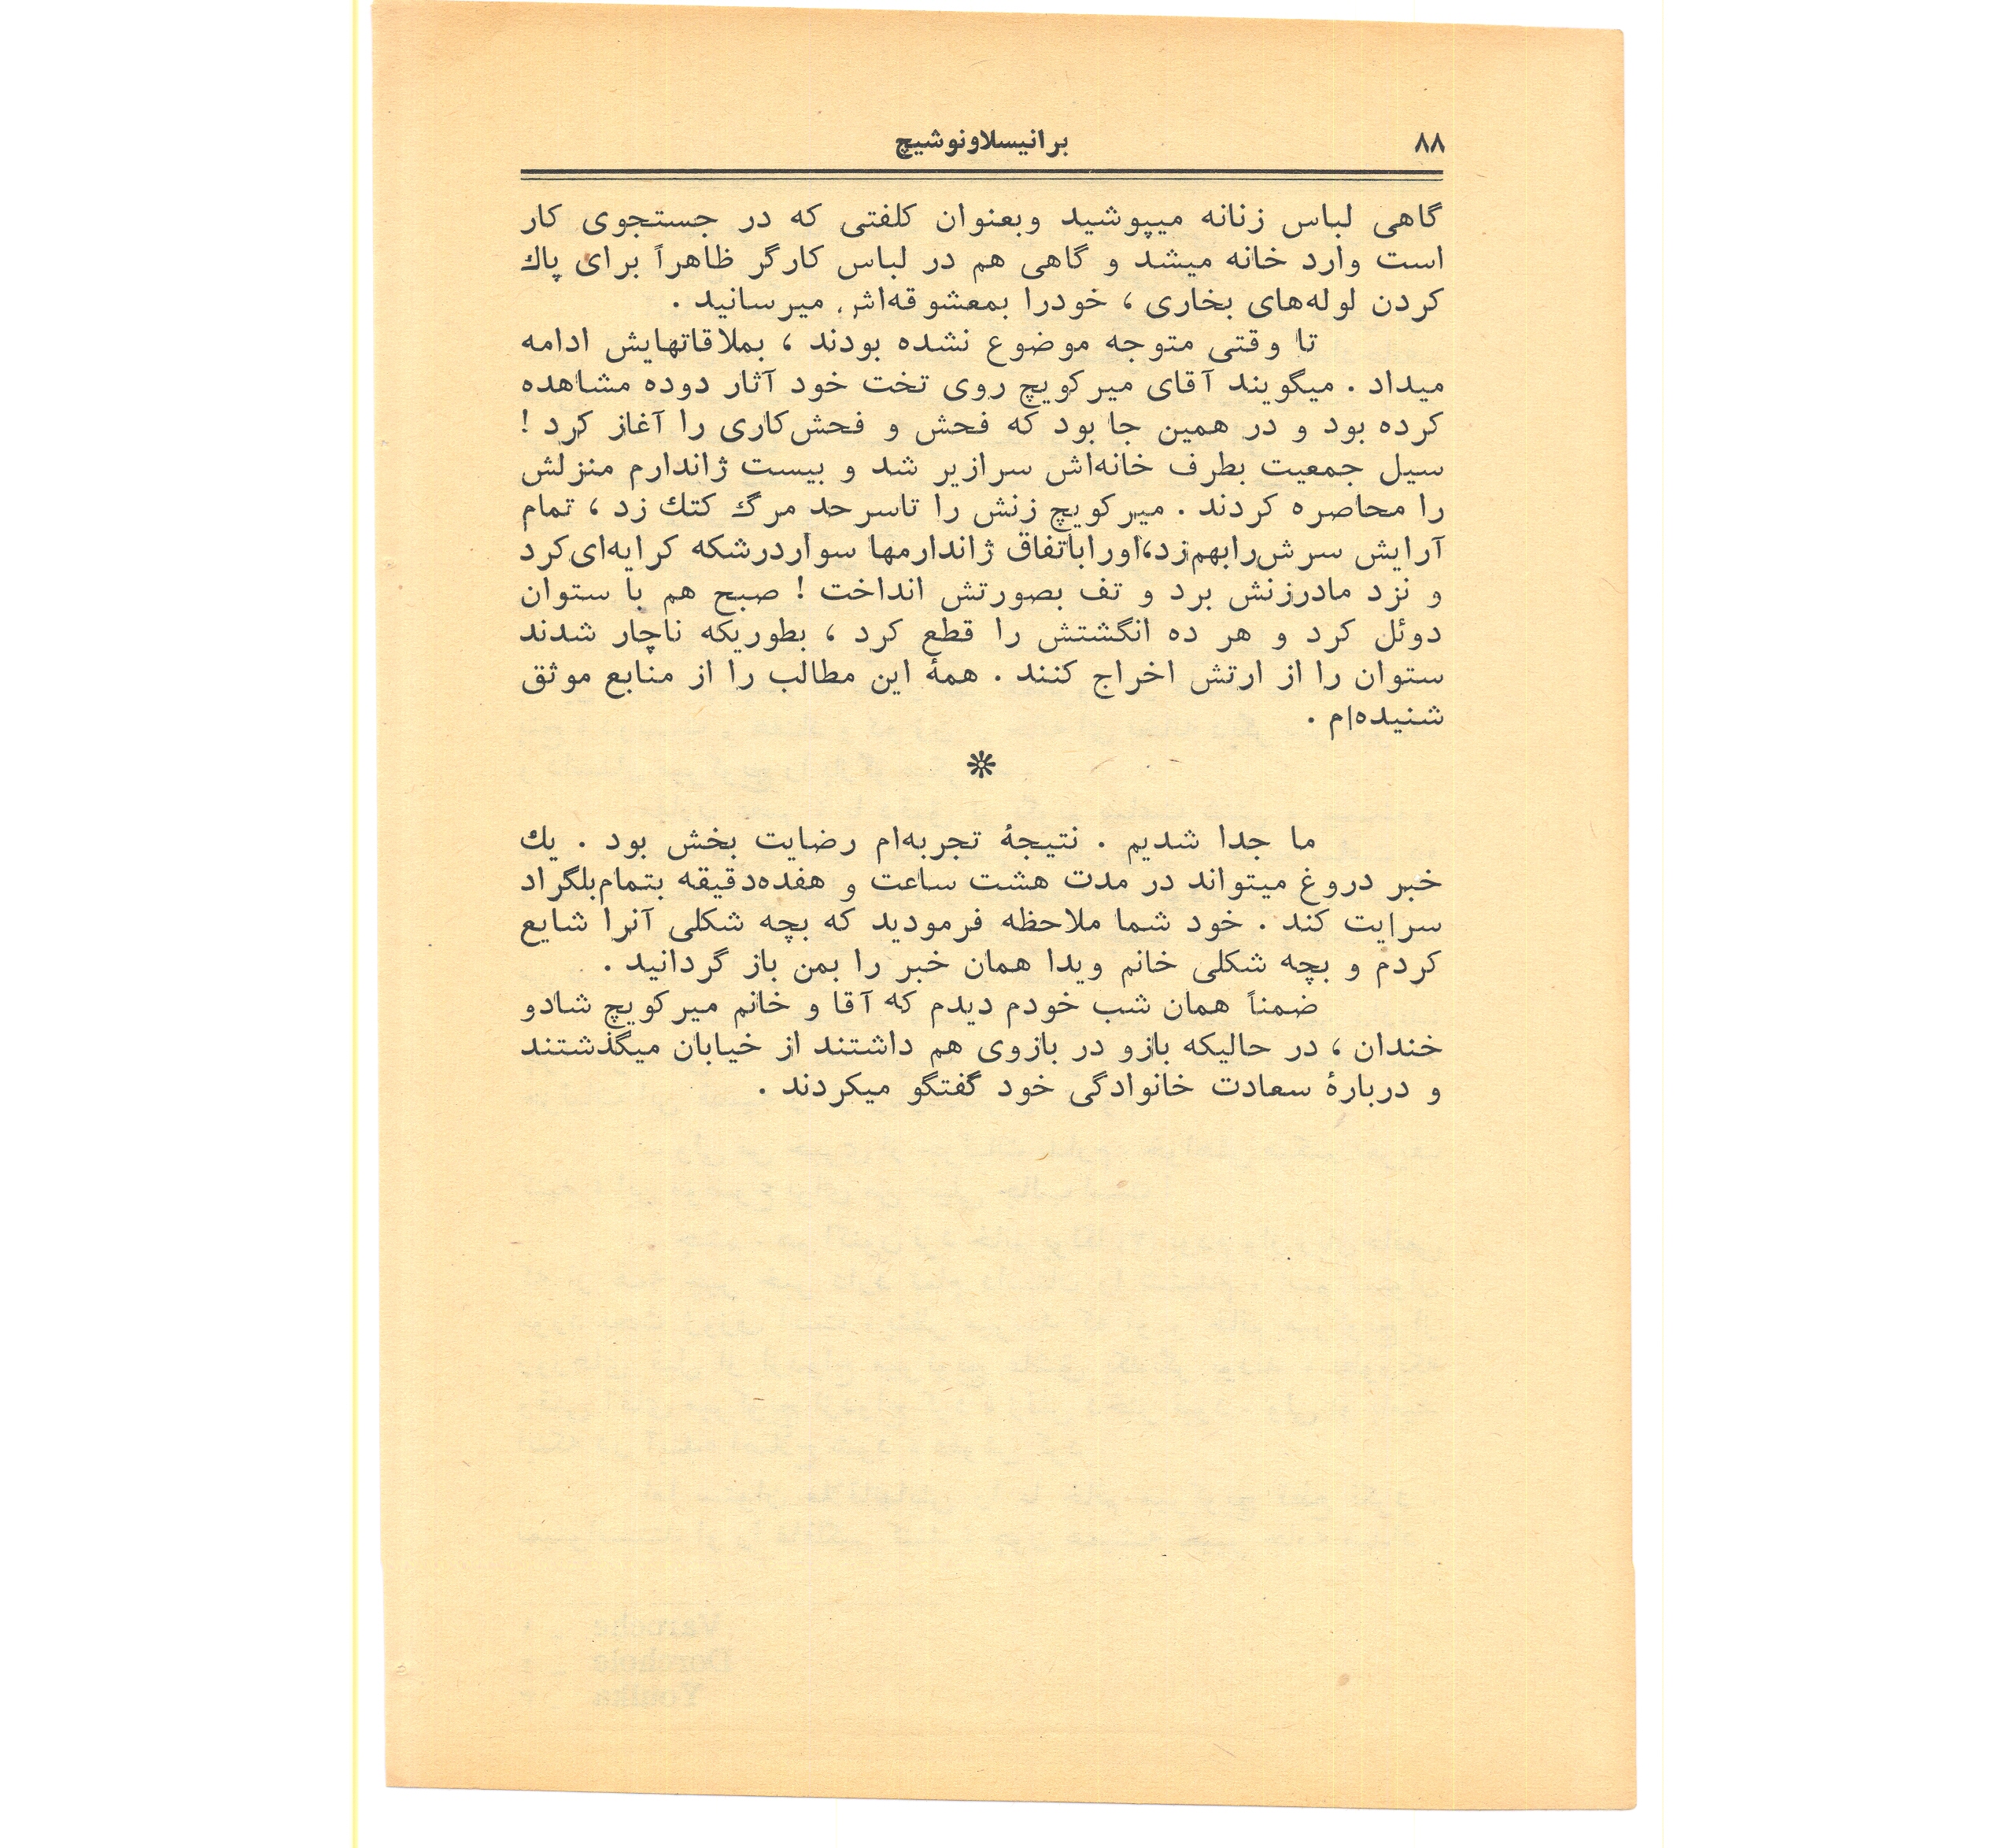 ۸۸
برانیسلاونوشیچ
گاهی لباس زنانه میپوشید وبعنوان کلفتی که در جستجوی کار
است وارد خانه میشد و گاهی هم در لباس کارگر ظاهراً برای پاك
کردن لوله‌های بخاری ، خودرا بمعشوقه‌اش میرسانید .
تا وقتی متوجه موضوع نشده بودند ، بملاقاتهایش ادامه
میداد . میگویند آقای میرکویچ روی تخت خود آثار دوده مشاهده
کرده بود و در همین جا بود که فحش و فحش‌کاری را آغاز کرد !
سیل جمعیت بطرف خانه‌اش سرازیر شد و بیست ژاندارم منزلش
را محاصره کردند . میرکویچ زنش را تاسرحد مرگ کتك زد ، تمام
آرایش سرش‌رابهم‌زد،اوراباتفاق ژاندارمها سواردرشکه کرایه‌ای‌کرد
و نزد مادرزنش برد و تف بصورتش انداخت ! صبح هم با ستوان
دوئل کرد و هر ده انگشتش را قطع کرد ، بطوریکه ناچار شدند
ستوان را از ارتش اخراج کنند . همهٔ این مطالب را از منابع موثق
شنیده‌ام .
❊
ما جدا شدیم . نتیجهٔ تجربه‌ام رضایت بخش بود . یك
خبر دروغ میتواند در مدت هشت ساعت و هفده‌دقیقه بتمام‌بلگراد
سرایت کند . خود شما ملاحظه فرمودید که بچه شکلی آنرا شایع
کردم و بچه شکلی خانم ویدا همان خبر را بمن باز گردانید .
ضمناً همان شب خودم دیدم که آقا و خانم میرکویچ شادو
خندان ، در حالیکه بازو در بازوی هم داشتند از خیابان میگذشتند
و دربارهٔ سعادت خانوادگی خود گفتگو میکردند .